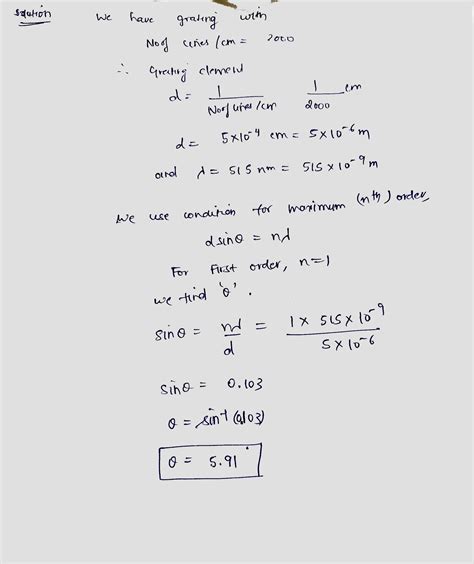 Solution We have grating with
No of lines /cm = 2000
∴ Grating element
d = 1 / No of lines /cm 1 / 2000 cm
d = 5×10⁻⁴ cm = 5×10⁻⁶ m
and λ = 515 nm = 515 × 10⁻⁹ m
We use condition for maximum (nth) order,
d sinθ = nλ
For First order, n=1
we find 'θ'.
sinθ = nλ / d = 1 × 515 × 10⁻⁹ / 5×10⁻⁶
sinθ = 0.103
θ = sin⁻¹ (0.103)
θ = 5.91°